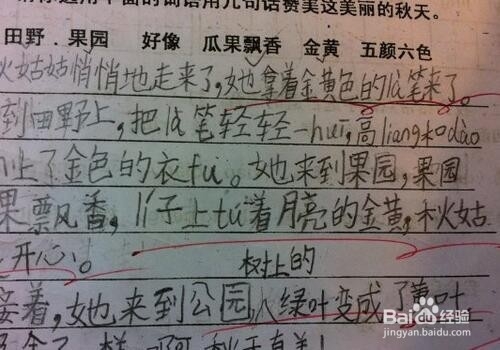 用几句话赞美这美丽的秋天。
田野 果园 好像 瓜果飘香 金黄 五颜六色
秋姑姑悄悄地走来了,她拿着金黄色的là笔来了。
到田野上,把là笔轻轻一huī,高liang和dào
上了金色的衣fu。她来到果园,果园
果飘香,lí子上tú着月亮的金黄,秋姑
开心。
树上的
接着,她来到公园,绿叶变成了黄叶
Baidu 经验
jingyan.baidu.com